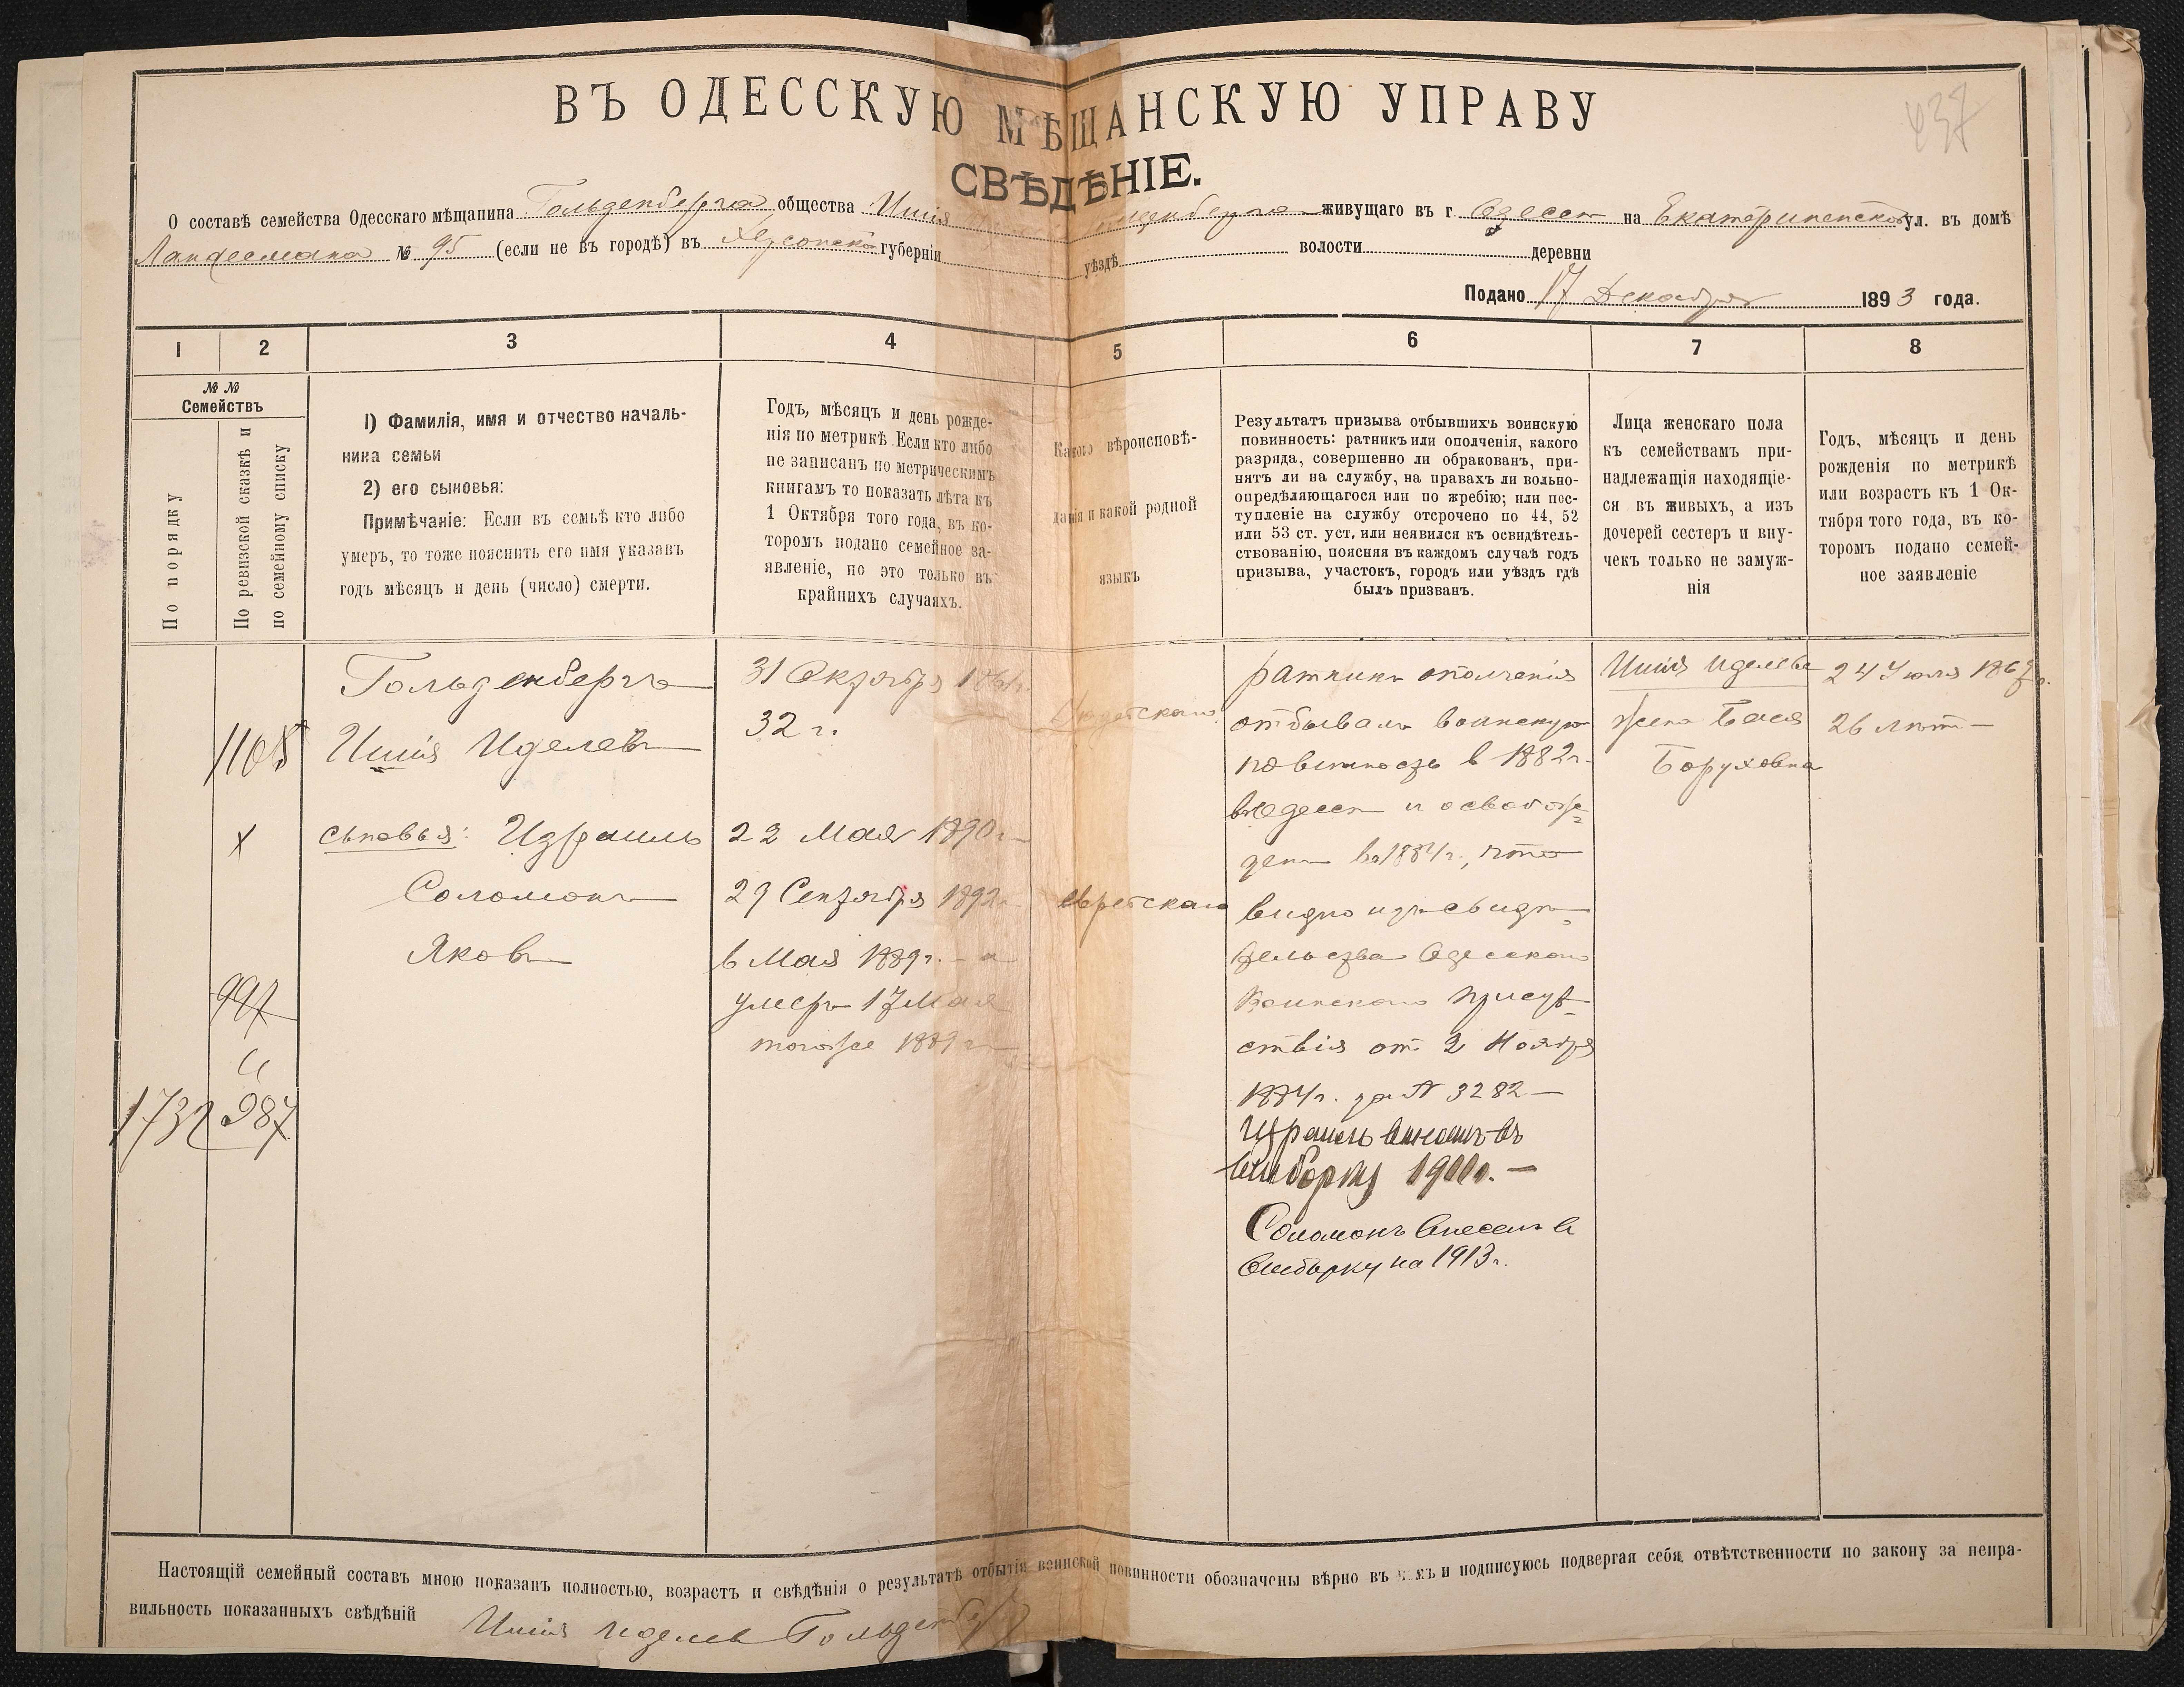 437
ВЪ ОДЕССКУЮ МѢЩАНСКУЮ УПРАВУ
СВѢДѢНІЕ.
О составѣ семейства Одесскаго мѣщанина Гольденберга общества Ишія Гольденберга живущаго въ г. Одессѣ на Екатериненской ул. въ домѣ
Ландесмана № 95 (если не въ городѣ) въ Херсонской губерніи уѣздѣ волости деревни
Подано 17 Декабря 1893 года.
1 2 3 4 5 6 7 8
№ №
Семействъ
По порядку
По ревизской сказкѣ и
по семейному списку
1) Фамилія, имя и отчество началь-
ника семьи
2) его сыновья:
Примѣчаніе: Если въ семьѣ кто либо
умеръ, то тоже пояснить его имя указавъ
годъ мѣсяцъ и день (число) смерти.
Годъ, мѣсяцъ и день рожде-
нія по метрикѣ. Если кто либо
не записанъ по метрическимъ
книгамъ то показать лѣта къ
1 Октября того года, въ ко-
торомъ подано семейное за-
явленіе, но это только въ
крайнихъ случаяхъ.
Какого вѣроисповѣ-
данія и какой родной
языкъ
Результатъ призыва отбывшихъ воинскую
повинность: ратникъ или ополченія, какого
разряда, совершенно ли обракованъ, при-
нятъ ли на службу, на правахъ ли вольно-
опредѣляющагося или по жребію; или пос-
тупленіе на службу отсрочено по 44, 52
или 53 ст. уст, или неявился къ освидѣтель-
ствованію, поясняя въ каждомъ случаѣ годъ
призыва, участокъ, городъ или уѣздъ гдѣ
былъ призванъ.
Лица женскаго пола
къ семействамъ при-
надлежащія находящіе-
ся въ живыхъ, а изъ
дочерей сестеръ и вну-
чекъ только не замуж-
нія
Годъ, мѣсяцъ и день
рожденія по метрикѣ
или возрастъ къ 1 Ок-
тября того года, въ ко-
торомъ подано семей-
ное заявленіе
1108
х
997
987
1732
Гольденбергъ
Ишія Иделевъ
сыновья: Израиль
Соломонъ
Яковъ
31 Октября 1861г.
32 г.
22 Мая 1890г.
29 Сентября 1892г.
6 Мая 1889г. – а
умеръ 17 Мая
тогоже 1889 г.
Іудейскаго
еврейскаго
ратникъ ополченія
отбывалъ воинскую
повинность в 1882г.
въ Одессѣ и освобож-
денъ въ 1884г., что
видно изъ свидѣ-
тельства Одесскаго
Воинскаго Присут-
ствія отъ 2 Ноября
1884г. за № 3282 –
Израиль внесенъ въ
выборку 1911г. –
Соломонъ внесенъ в
выборку на 1913г.
Ишія Иделева
жена Бася
Боруховна
24 Іюля 1867г.
26 лѣтъ –
Настоящій семейный составъ мною показанъ полностью, возрастъ и свѣдѣнія о результатѣ отбытія воинской повинности обозначены вѣрно въ чемъ и подписуюсь подвергая себя отвѣтственности по закону за непра-
вильность показанныхъ свѣдѣній Ишія Иделев Гольденберг